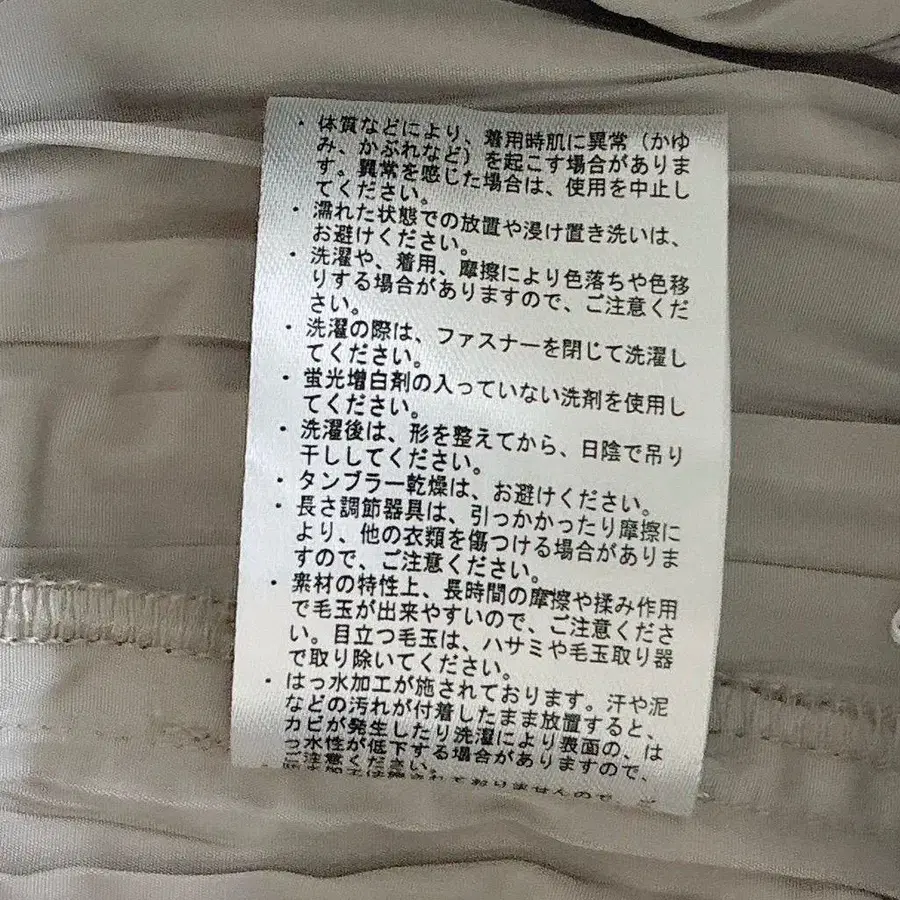 ・体質などにより、着用時肌に異常（かゆ
み、かぶれなど）を起こす場合がありま
す。異常を感じた場合は、使用を中止し
てください。
・濡れた状態での放置や浸け置き洗いは、
お避けください。
・洗濯や、着用、摩擦により色落ちや色移
りする場合がありますので、ご注意くだ
さい。
・洗濯の際は、ファスナーを閉じて洗濯し
てください。
・蛍光増白剤の入っていない洗剤を使用し
てください。
・洗濯後は、形を整えてから、日陰で吊り
干ししてください。
・タンブラー乾燥は、お避けください。
・長さ調節器具は、引っかかったり摩擦に
より、他の衣類を傷つける場合がありま
すので、ご注意ください。
・素材の特性上、長時間の摩擦や揉み作用
で毛玉が出来やすいので、ご注意くださ
い。目立つ毛玉は、ハサミや毛玉取り器
で取り除いてください。
・はっ水加工が施されております。汗や泥
などの汚れが付着したまま放置すると、
カビが発生したり洗濯により表面の、は
っ水性が低下する場合がありますので、
ご注意ください。
ておりませんので